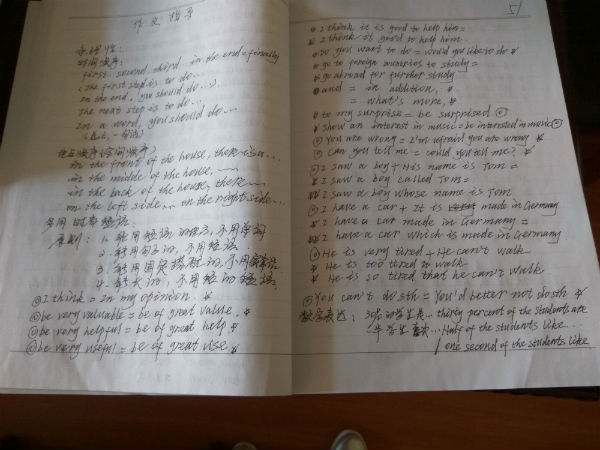 作文指导
条理性:
时间顺序:
first, second, third, in the end = finally
(The first step is to do...
In the end, you should do...)
The next step is to do...
In a word, you should do...
地点顺序(空间顺序)
in the front of the house, there is...
in the middle of the house,
in the back of the house, there
on the left side, ... on the right side...
多用
原则: 1.
2.
3.
4.
① I think = In my opinion
② be very valuable = be of great value.
③ be very helpful = be of great help
④ be very useful = be of great use
51
I think it is good to help him =
I think it good to help him.
Do you want to do = Would you like to do
go to foreign countries to study =
go abroad for further study
and = in addition,
= what's more,
to my surprise = be surprised
show an interest in music = be interested in music
You are wrong = I'm afraid you are wrong
Can you tell me = could you tell me?
I saw a boy + His name is Tom =
I saw a boy called Tom =
I saw a boy whose name is Tom
I have a car + It is made in Germany
I have a car made in Germany =
I have a car which is made in Germany
He is very tired + He can't walk
He is too tired to walk
He is so tired that he can't walk
You can't do sth = You'd better not do sth
数字表达: 30%的学生喜... thirty percent of the students are
半学生喜欢... Half of the students like...
/ one second of the students like